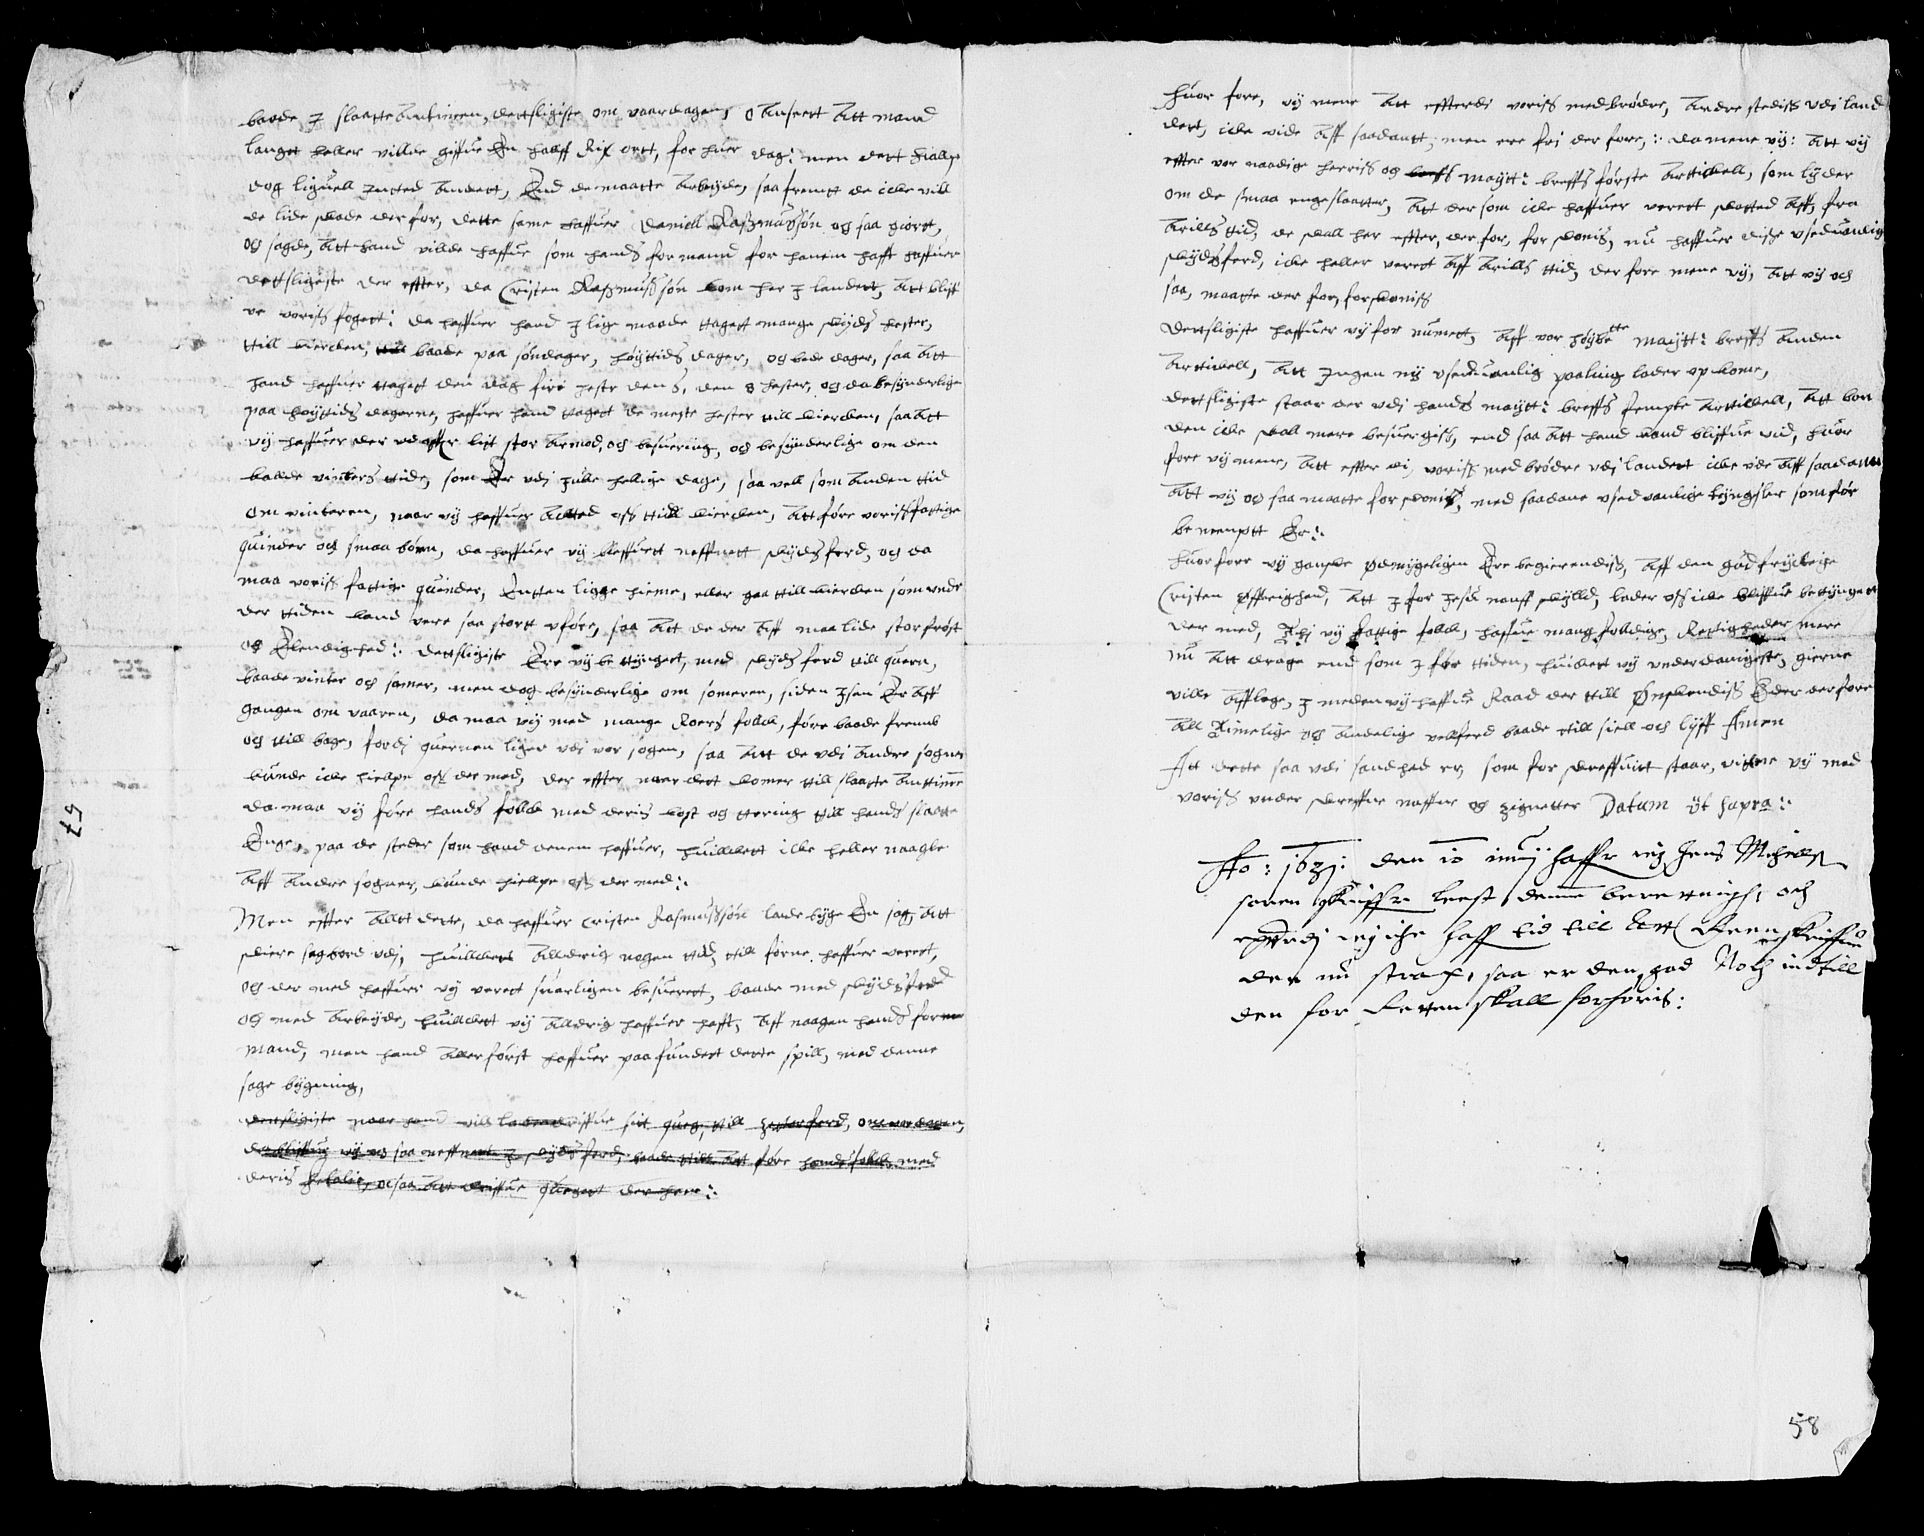 baade J slaatte Antimen, dettsligiste om vaardagen, Anseett Att mand
langtt heller villde giffue En halff Rix ortt, for huer dag: men dett hialp
dog liguell Jntted Andett, End de maatte Arbeyde, saa fremtt de icke vill
de lide skade der for, dette same haffuer Daniell Rasmussøn og saa giort,
og sagde, Att hand villde haffue som hands formand for hanem hafft haffuer
dettsligeste der effter, da Cristen Rasmussøn kom her J landett, Att bliff
ue voriss fogett: da haffuer hand J lige maade ttagett mange skydtz hester,
till kiercken, baade paa søndager, høyttids dager, og bede dager, saa Att
hand haffuer ttagett den dag fire hester den 8 hester, og da besynderlige
paa høyttids dagerne, haffuer hand ttagett de meste hester till kiercken, saa Att
vy haffuer der lytt stor Armod, och besuering, och besynderlige om den
kalde vinters ttide, som Er vdi Julle hellige dage, saa vell som Anden ttid
om vinteren, naar vy haffuer Acttted oss till kiercken, Att føre voriss fattige
quinder och smaa børn, da haffuer vy bleffuett neffnett skydtz ferd, och da
maa voriss fattige quinder, Entten ligge hieme, eller gaa till kiercken som vnder
der ttiden kand vere saa stortt vføre, saa Att de der Aff maa lide stor frøst
og Elendighed:. dettsligiste Ere vy be ttynget, med skydtz ferd till quern,
baade vinter och somer, men dog besynderlige om someren, siden Jsen Er Aff
gangen om vaaren, da maa vy med mange Roers follck, føre baade fremb
og till bage, fordi quernen liger vdi vor sogen, saa Att de vdi Andre sogner
kunde icke hielpe oss der med, der effter naar dett komer till slaatte Anttimen
da maa vy føre hands follck med deris kost og ttering till hands slaatte
Enge, paa de steder som hand denem haffuer, huilckett icke heller naagle
Aff Andre sogner, kunde hielpe oss der med:.
Men effter Alltt dette, da haffuer Cristen Rasmussøn lade byge En sag Att
skiere sagbord vdi, huilckett Alldrig nogen ttid till forne haffuer verett,
og der med haffuer vy verett suarligen besuerett, baade med skydtzferd
og med Arbeyde, huilckett vy Alldrig haffuer hafft, Aff naagen hands for
mand, men hand Aller først haffuer paa fundett dette spill, med denne
sage bygning,
dettsligiste naar hand vill lade driffue sitt queg, till Jetterferd, om vardagen,
da bliffuer vy og saa neffnett J skydtz ferd, baade till Att føre hands follck med
deris, ocsaa Att driffue quegett der hen:.
57
huor fore, vy mene Att effterdi voriss medbrødre, Andre stedtz vdi land
dett, icke vide Aff saadantt, men ere fri der fore,:. da mene vy: Att vy
effter vor naadige herriss og maytt: breffs første Arttickell, som lyder
om de smaa engeslaatter, Att der som icke haffuer verett skatted Aff, fra
Arilltz ttid, de skall her effter, der for, for skonis, nu haffuer disse vseduanlig
skydtzferd, icke heller verett Aff Arills ttid, der fore mene vy, Att vy och
saa, maatte der for, forskoniss
Dettsligiste haffuer vy for numett, Aff vor høybe tte maytt: breffs Anden
Arttickell, Att Jngen ny vseduanlig paaleg lader op kome,
dettsligiste staar der vdi hands maytt: breffs fempte Arttickell, Att bon
den icke skall mere besuergiss, end saa Att hand kand bliffue vid, huor
fore vy mene, Att effter di, voriss medbrødre vdi landett icke vide Aff saadantt
Att vy og saa maatte for skoniss, med saadane vsedvanlige tyngsler som før
benemptt Er:.
huor fore vy ganske ødmygeligen Ere begierendiss, Aff den gudfryctige
Cristen Øffrighed, Att J for Jesu naaff skylld, lader oss icke bliffue bettynget
der med, Thi vy fattige follck, haffue mangfolldige, Rettigheder mere
nu Att drage end som J før ttiden, huilckett vy vnderdanigste, gierne
ville Afflege, J meden vy haffue Raad der till Ønskendiss Eder der fore
All Timelige og Andelige vellferd baade till siell och lyff Amen
Att dette saa vdi sandhed er, som for skreffuitt staar, vittne vy med
voriss vnder skreffne naffne og zignetter Datum Ut supra:.
Ao: 1631: den 10 haffr Jeg Jens Mickell
sønen Skriffr leest denne beretningh, och
epttrdj Jeg iche haff tid till Att Reenskriffue
den nu strax, saa er den god Noch indtill
den for Retten skall forhøris:
58